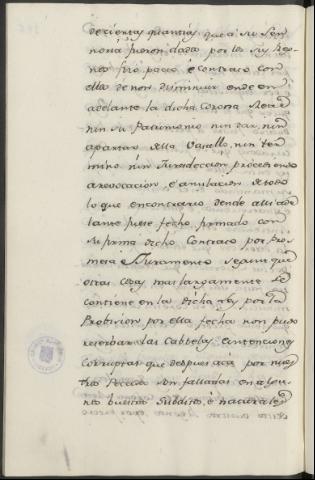 de ciertas quantias que a su Sen
noria fueron dadas por los sus Rey
nos fizo pacto, é contrato con
ella de non disminuir ende en
adelante la dicha Corona Real
nin su Patrimonio nin dar, nin
apartar della Vasallo, nin ter
mino nin Juredeccion procediendo
a revocacion, é anulacion de todo
lo que en contrario dende alli ade
lante fuese fecho, firmado con
su firma dicho Contrato por Pro
mesa é Juramento segunt que
otras cosas mas largamente se
contiene en la dicha Ley por la
Provision por ella fecha non pudo
refrenar las Cabtelas, é intenciones
corruptas que despues acá por nues
tros pecados son falladas en algu
nos buestros Subditos, é naturales